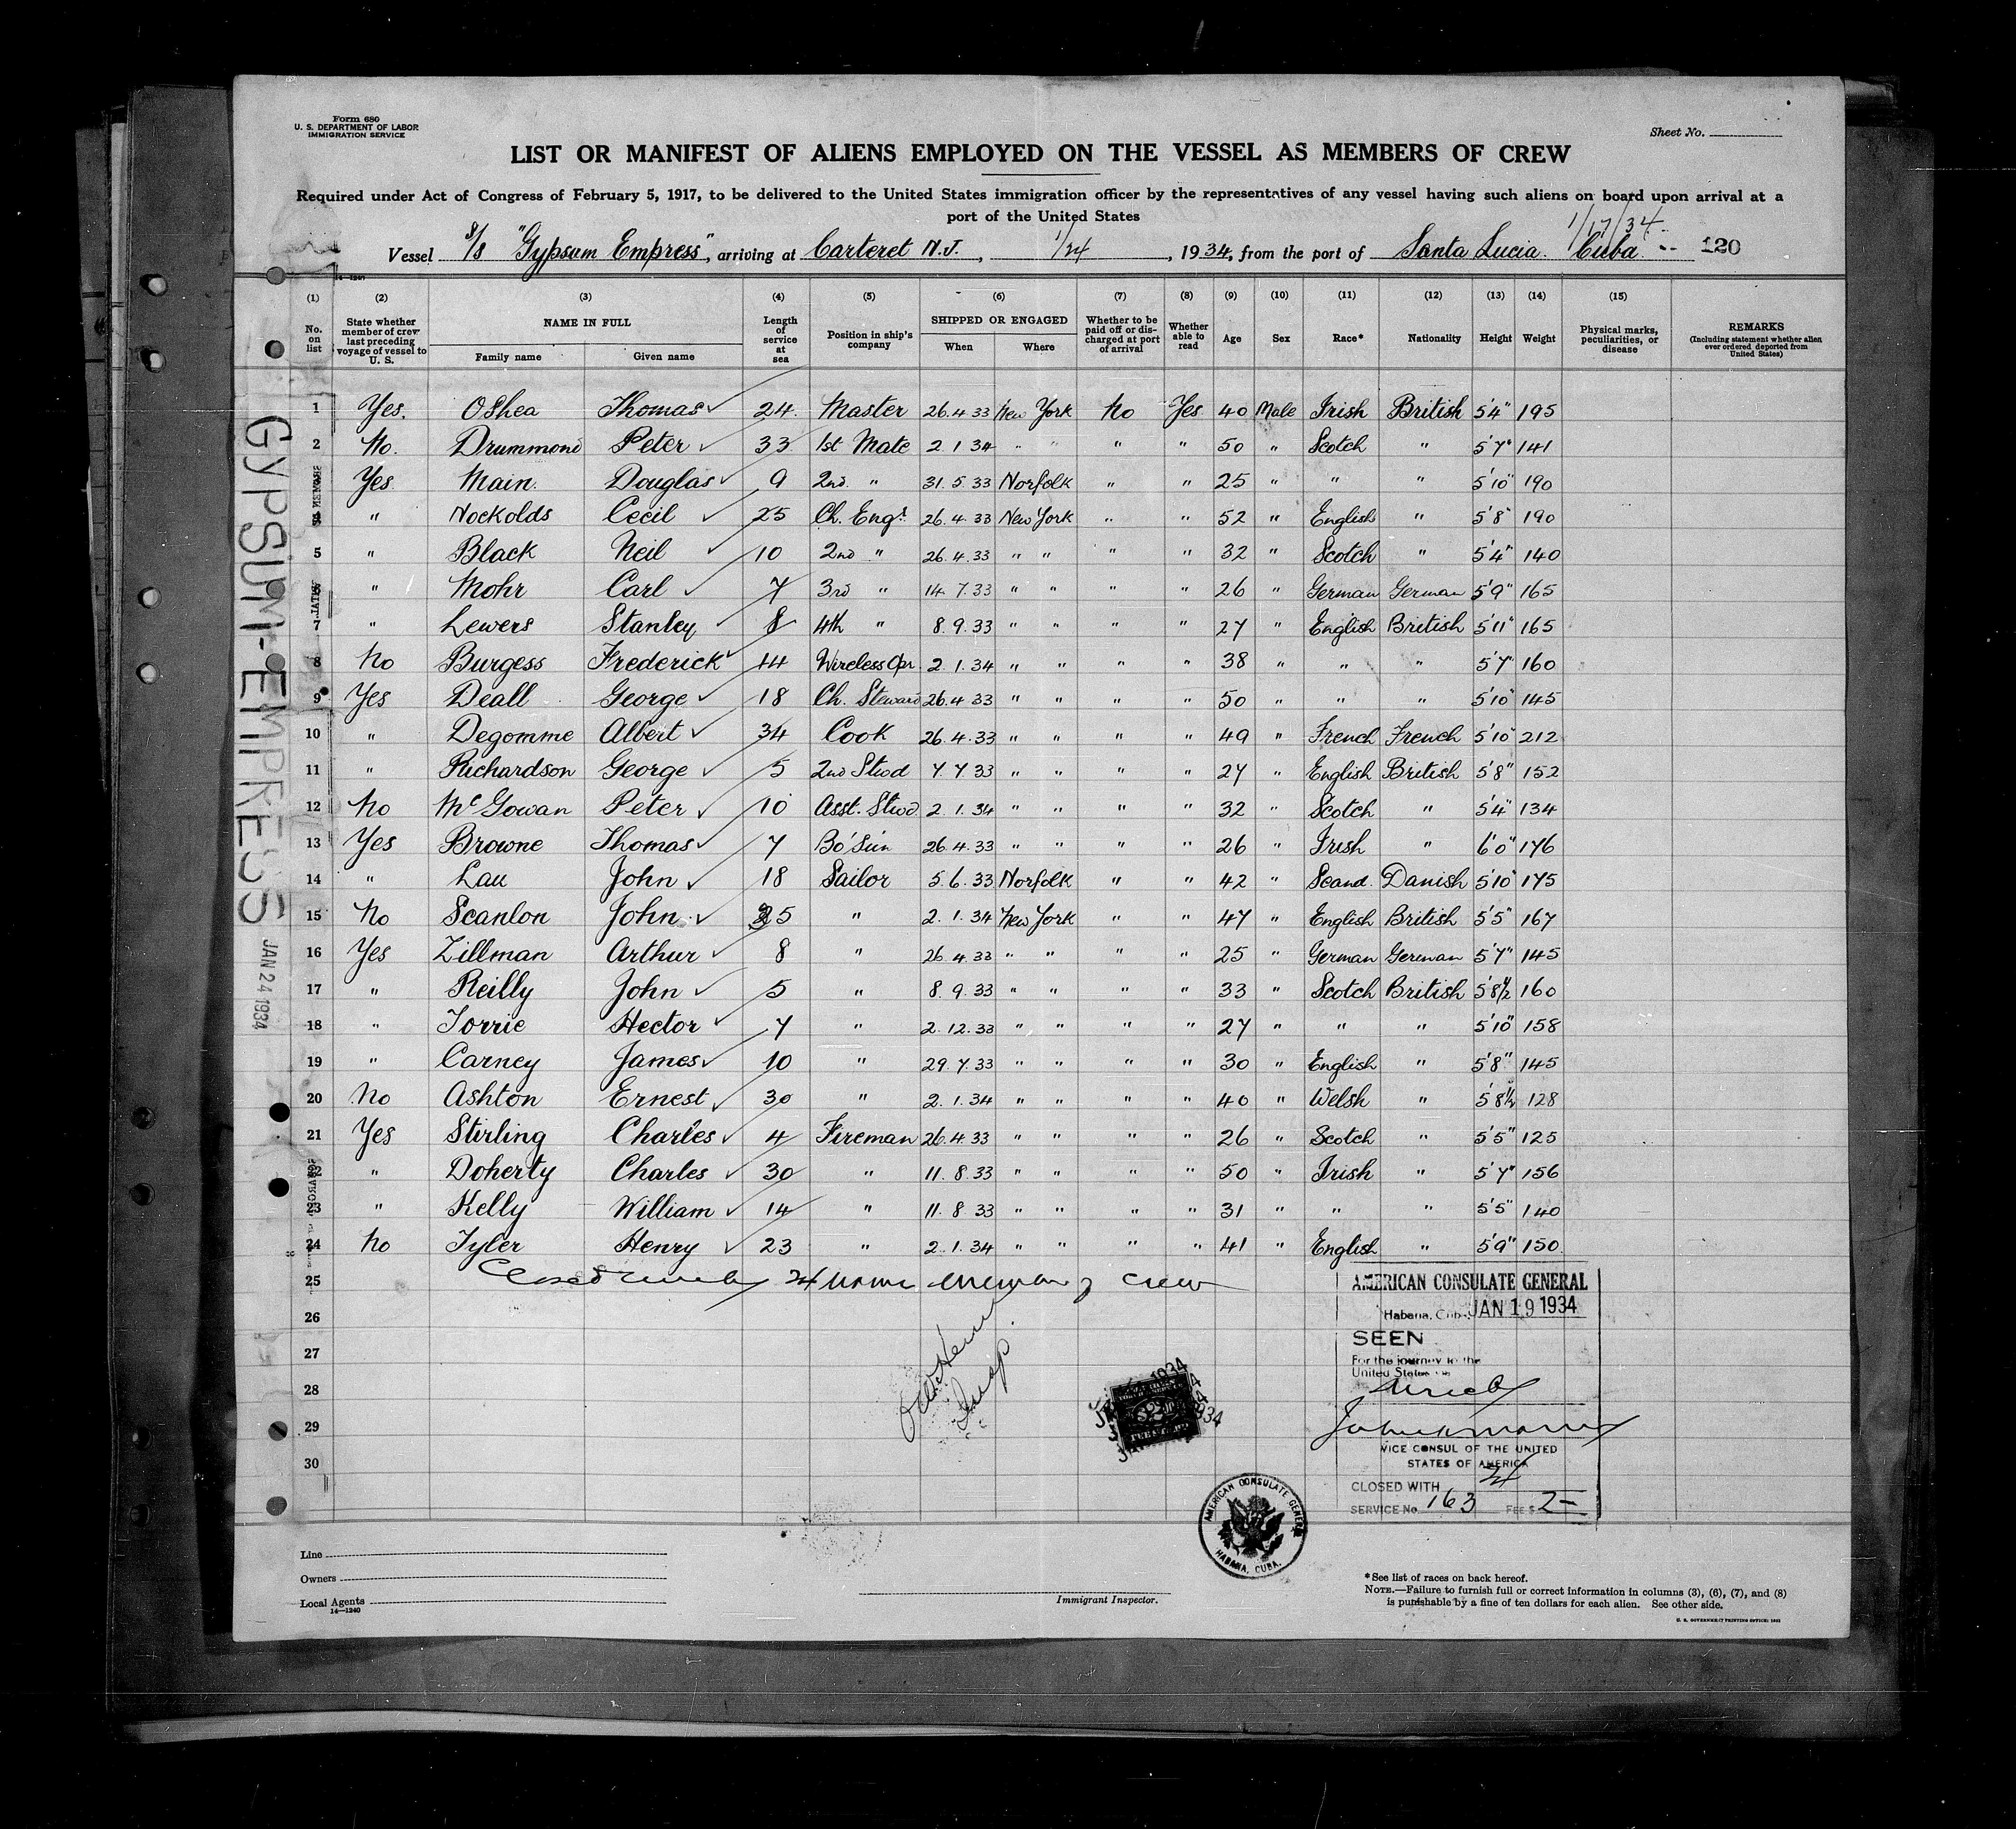 Form 680
U. S. DEPARTMENT OF LABOR
IMMIGRATION SERVICE
Sheet No.
LIST OR MANIFEST OF ALIENS EMPLOYED ON THE VESSEL AS MEMBERS OF CREW
Required under Act of Congress of February 5, 1917, to be delivered to the United States immigration officer by the representatives of any vessel having such aliens on board upon arrival at a
port of the United States
1/17/34
Vessel S/S "Gypsum Empress", arriving at Carteret N.J., 1/24, 1934, from the port of Santa Lucia. Cuba. 120
14-1240
(1) (2) (3) (4) (5) (6) (7) (8) (9) (10) (11) (12) (13) (14) (15)
No. on list State whether member of crew last preceding voyage of vessel to U. S. NAME IN FULL Family name Given name Length of service at sea Position in ship's company SHIPPED OR ENGAGED When Where Whether to be paid off or discharged at port of arrival Whether able to read Age Sex Race* Nationality Height Weight Physical marks, peculiarities, or disease REMARKS (Including statement whether alien ever ordered deported from United States)
1 Yes. OShea Thomas 24 Master 26.4.33 New York No Yes 40 Male Irish British 5'4" 195
2 No. Drummond Peter 33 1st Mate 2 1 34 " " " " 50 " Scotch " 5'7" 141
3 Yes Main. Douglas 9 2nd. " 31.5.33 Norfolk " " 25 " " " 5'10" 190
4 " Nockolds Cecil 25 Ch. Engr. 26.4.33 New York " " 52 " English " 5'8" 190
5 " Black Neil 10 2nd " 26.4.33 " " " " 32 " Scotch " 5'4" 140
6 " Mohr Carl 7 3rd " 14.7.33 " " " " 26 " German German 5'9" 165
7 " Lewers Stanley 8 4th " 8.9.33 " " " " 27 " English British 5'11" 165
8 No Burgess Frederick 14 Wireless Opr. 2.1.34 " " " " 38 " " " 5'7" 160
9 Yes Deall George 18 Ch. Steward 26.4.33 " " " " 50 " " " 5'10" 145
10 " Degomme Albert 34 Cook 26.4.33 " " " " 49 " French French 5'10" 212
11 " Richardson George 5 2nd Stwd 7.7.33 " " " " 27 " English British 5'8" 152
12 No McGowan Peter 10 Asst. Stwd 2.1.34 " " " " 32 " Scotch " 5'4" 134
13 Yes Browne Thomas 7 Bo'sun 26.4.33 " " " " 26 " Irish " 6'0" 176
14 " Lau John 18 Sailor 5.6.33 Norfolk " " 42 " Scand. Danish 5'10" 175
15 No Scanlon John 25 " 2.1.34 New York " " 47 " English British 5'5" 167
16 Yes Zillman Arthur 8 " 26.4.33 " " " " 25 " German German 5'7" 145
17 " Reilly John 5 " 8.9.33 " " " " 33 " Scotch British 5'8½ 160
18 " Torrie Hector 7 " 2.12.33 " " " " 27 " " " 5'10" 158
19 " Carney James 10 " 29.7.33 " " " " 30 " English " 5'8" 145
20 No Ashton Ernest 30 " 2.1.34 " " " " 40 " Welsh " 5'8½ 128
21 Yes Stirling Charles 4 Fireman 26.4.33 " " " " 26 " Scotch " 5'5" 125
22 " Doherty Charles 30 " 11.8.33 " " " " 50 " Irish " 5'7" 156
23 " Kelly William 14 " 11.8.33 " " " " 31 " " " 5'5" 140
24 No Tyler Henry 23 " 2.1.34 " " " " 41 " English " 5'9" 150
25 Closed 24 crew
26
27
28
29
30
Insp
GYPSUM-EMPRESS JAN 24 1934
AMERICAN CONSULATE GENERAL
Habana, Cuba, JAN 19 1934
SEEN
For the journey to the
United States
VICE CONSUL OF THE UNITED
STATES OF AMERICA
CLOSED WITH 24
SERVICE No. 163 FEE $ 2-
AMERICAN CONSULATE GENERAL
HABANA, CUBA.
Line
Owners
Local Agents
14-1240
Immigrant Inspector.
*See list of races on back hereof.
NOTE.—Failure to furnish full or correct information in columns (3), (6), (7), and (8)
is punishable by a fine of ten dollars for each alien. See other side.